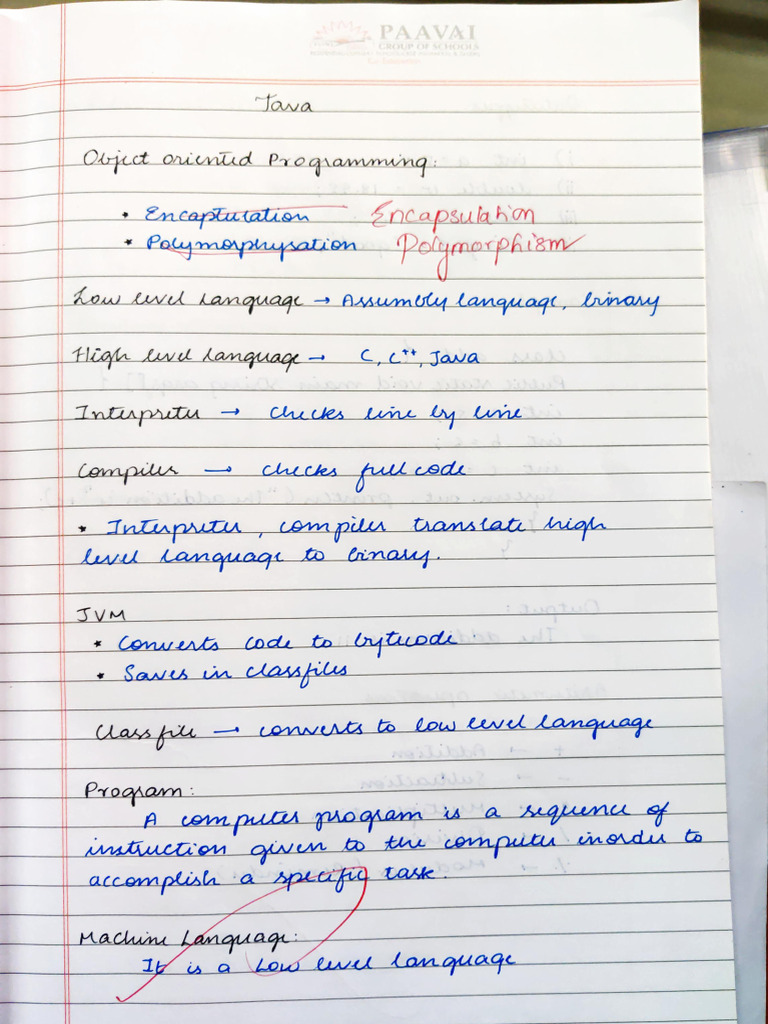 PAAVAI
GROUP OF SCHOOLS
Java
Object oriented Programming:
• Encaptulation Encapsulation
• Polymorphysation Polymorphism
Low level language → Assumbly language, binary
High level language → C, C++, Java
Interpreter → checks line by line
Compiler → checks full code
• Interpreter, compiler translate high
level language to binary.
JVM
• Converts code to bytecode
• Saves in classfiles
Classfile → converts to low level language
Program:
A computer program is a sequence of
instruction given to the computer inorder to
accomplish a specific task.
Machine Language:
It is a Low level language